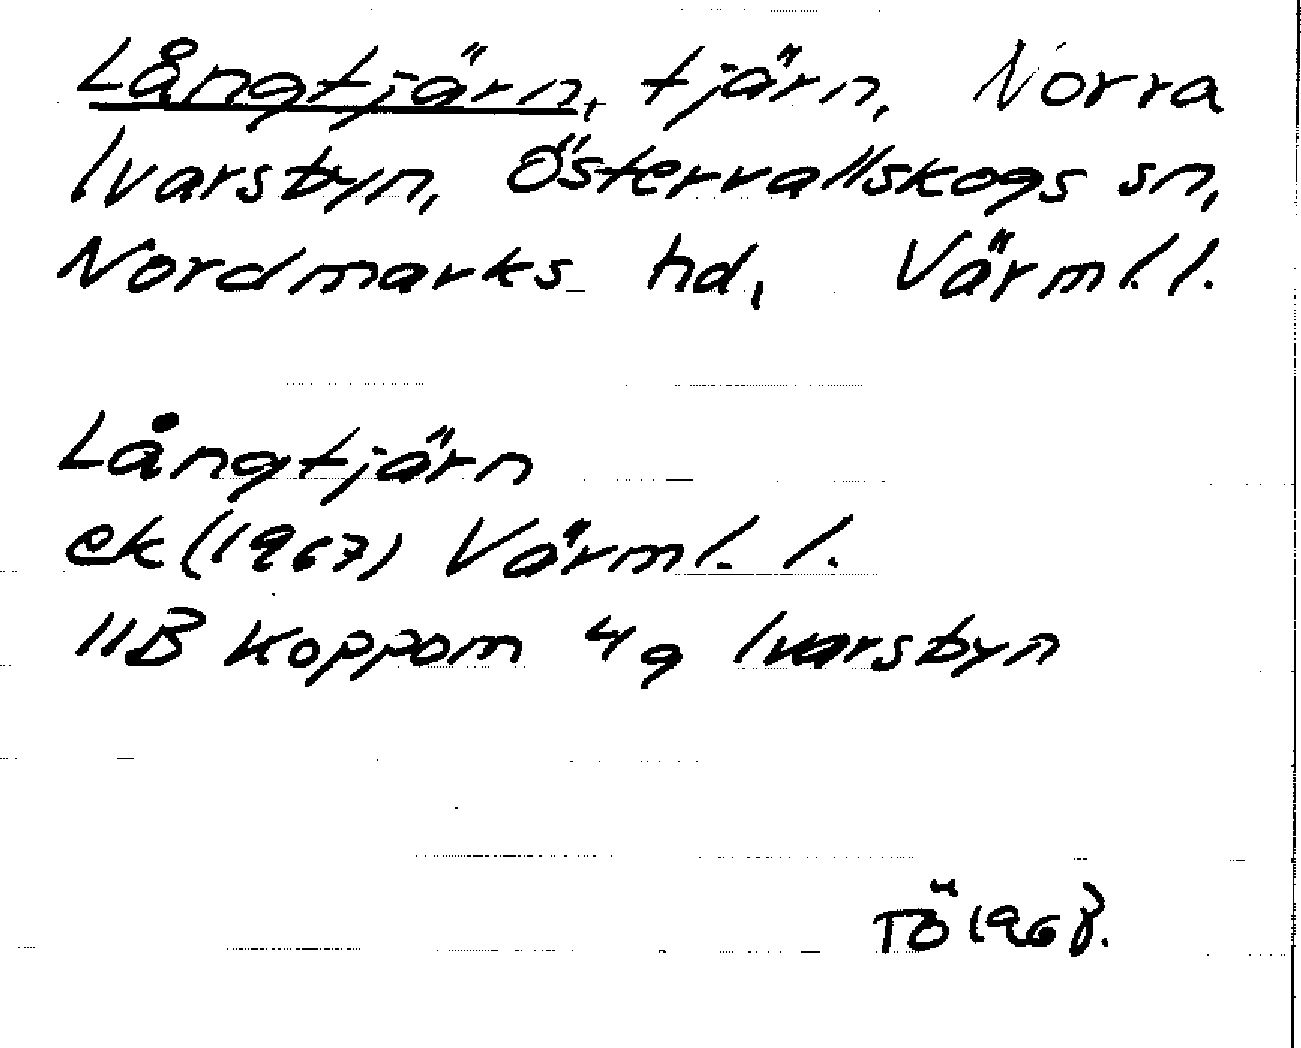 Långtjärn, tjärn, Norra
Ivarsbyn, Östervallskogs sn,
Nordmarks hd, Värml. l.
Långtjärn
ek (1967) Värml. l.
11B Koppom 4g Ivarsbyn
TÖ 1968.